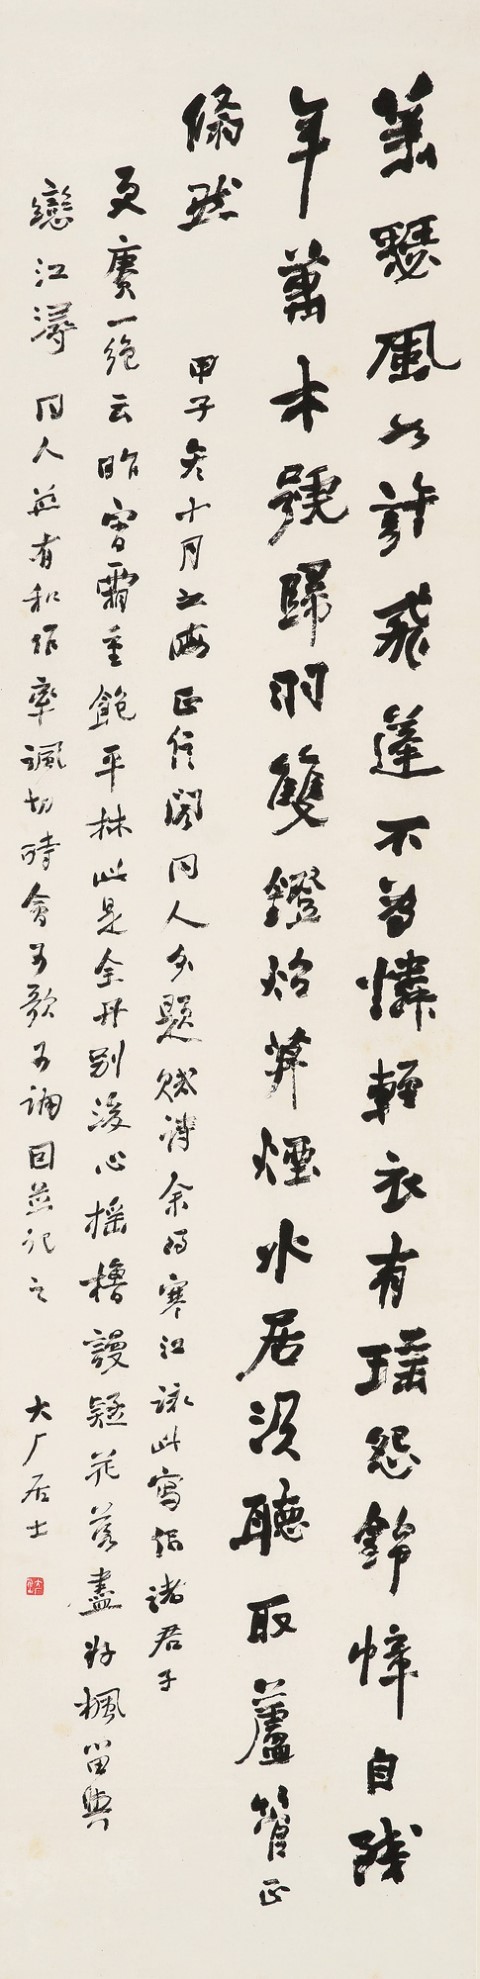 蕭瑟風如許飛蓬不自憐輕衣有瑤怨錦幃自殘
年萬木號歸羽雙鐙焰葬煙水居須聽取蘆管正
翛然
甲子冬十月上海正信閣同人分題賦詩余得寒江詠此寫招諸君子
更賡一絕云昨宵霜重飽平林此是金丹別後心搖櫓謾疑花落盡好楓留與
戀江潯 同人並有和作率諷切時會可歌可誦因並記之 大厂居士